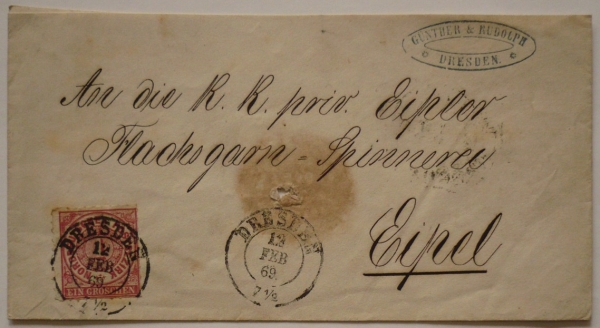 GÜNTHER & RUDOLPH
DRESDEN.
An die K. K. priv. Eipler
Flachsgarn-Spinnerei
Eipel
DRESDEN
12
FEB
69
7 1/2
EIN GROSCHEN
DRESDEN
12
FEB
69.
7 1/2